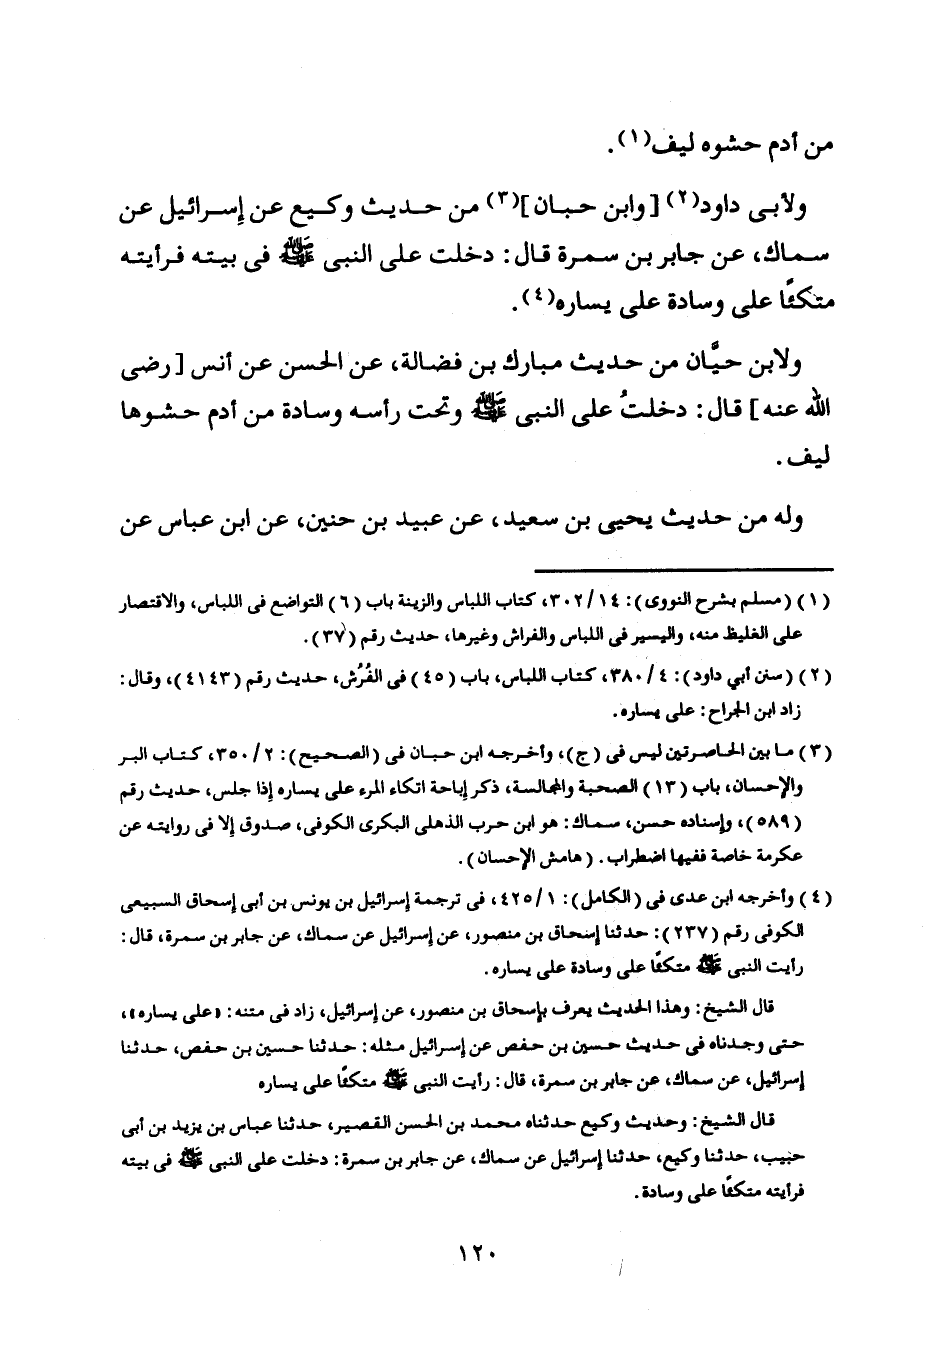 من أدم حشوه ليف(١).
ولأبى داود(٢) [وابن حبان](٣) من حديث وكيع عن إسرائيل عن
سماك، عن جابر بن سمرة قال: دخلت على النبى ﷺ فى بيته فرأيته
متكئًا على وسادة على يساره(٤).
ولابن حيَّان من حديث مبارك بن فضالة، عن الحسن عن أنس [رضى
الله عنه] قال: دخلتُ على النبى ﷺ وتحت رأسه وسادة من أدم حشوها
ليف.
وله من حديث يحيى بن سعيد، عن عبيد بن حنين، عن ابن عباس عن
(١) (مسلم بشرح النووى): ٣٠٢/١٤، كتاب اللباس والزينة باب (٦) التواضع فى اللباس، والاقتصار
على الغليظ منه، واليسير فى اللباس والفراش وغيرها، حديث رقم (٣٧).
(٢) (سنن أبي داود): ٣٨٠/٤، كتاب اللباس، باب (٤٥) فى الفُرُش، حديث رقم (٤١٤٣)، وقال:
زاد ابن الجراح: على يساره.
(٣) ما بين الحاصرتين ليس فى (ج)، وأخرجه ابن حبان فى (الصحيح): ٣٥٠/٢، كتاب البر
والإحسان، باب (١٣) الصحبة والمجالسة، ذكر إباحة اتكاء المرء على يساره إذا جلس، حديث رقم
(٥٨٩)، وإسناده حسن، سماك: هو ابن حرب الذهلى البكرى الكوفى، صدوق إلا فى روايته عن
عكرمة خاصة ففيها اضطراب. (هامش الإحسان).
(٤) وأخرجه ابن عدى فى (الكامل): ٤٢٥/١، فى ترجمة إسرائيل بن يونس بن أبى إسحاق السبيعى
الكوفى رقم (٢٣٧): حدثنا إسحاق بن منصور، عن إسرائيل عن سماك، عن جابر بن سمرة، قال:
رأيت النبى ﷺ متكئًا على وسادة على يساره.
قال الشيخ: وهذا الحديث يعرف بإسحاق بن منصور، عن إسرائيل، زاد فى متنه: «على يساره»،
حتى وجدناه فى حديث حسين بن حفص عن إسرائيل مثله: حدثنا حسين بن حفص، حدثنا
إسرائيل، عن سماك، عن جابر بن سمرة، قال: رأيت النبى ﷺ متكئًا على يساره
قال الشيخ: وحديث وكيع حدثناه محمد بن الحسن القصير، حدثنا عباس بن يزيد بن أبى
حبيب، حدثنا وكيع، حدثنا إسرائيل عن سماك، عن جابر بن سمرة: دخلت على النبى ﷺ فى بيته
فرأيته متكئًا على وسادة.
١٢٠